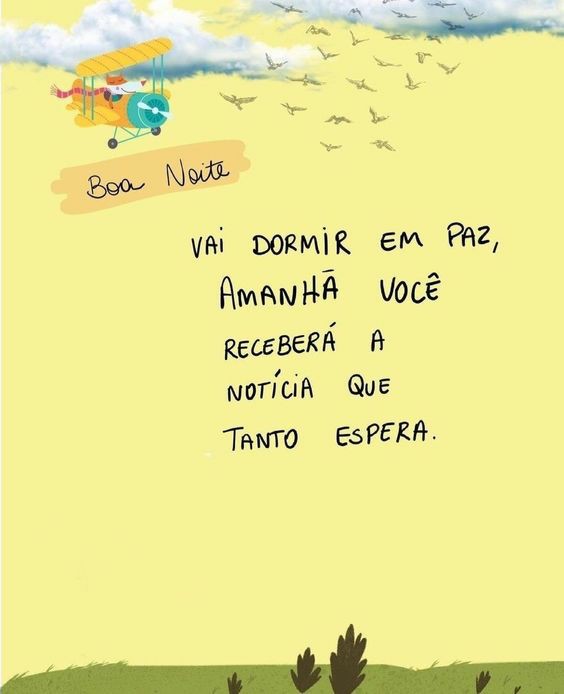 Boa Noite
VAI DORMIR EM PAZ,
AMANHÃ VOCÊ
RECEBERÁ A
NOTÍCIA QUE
TANTO ESPERA.